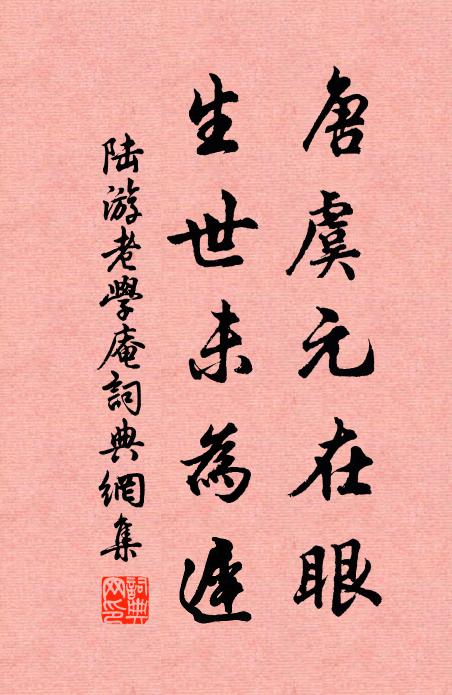 唐虞元在眼
生世未為遲
陸游老學庵詞典網集
詞典網印